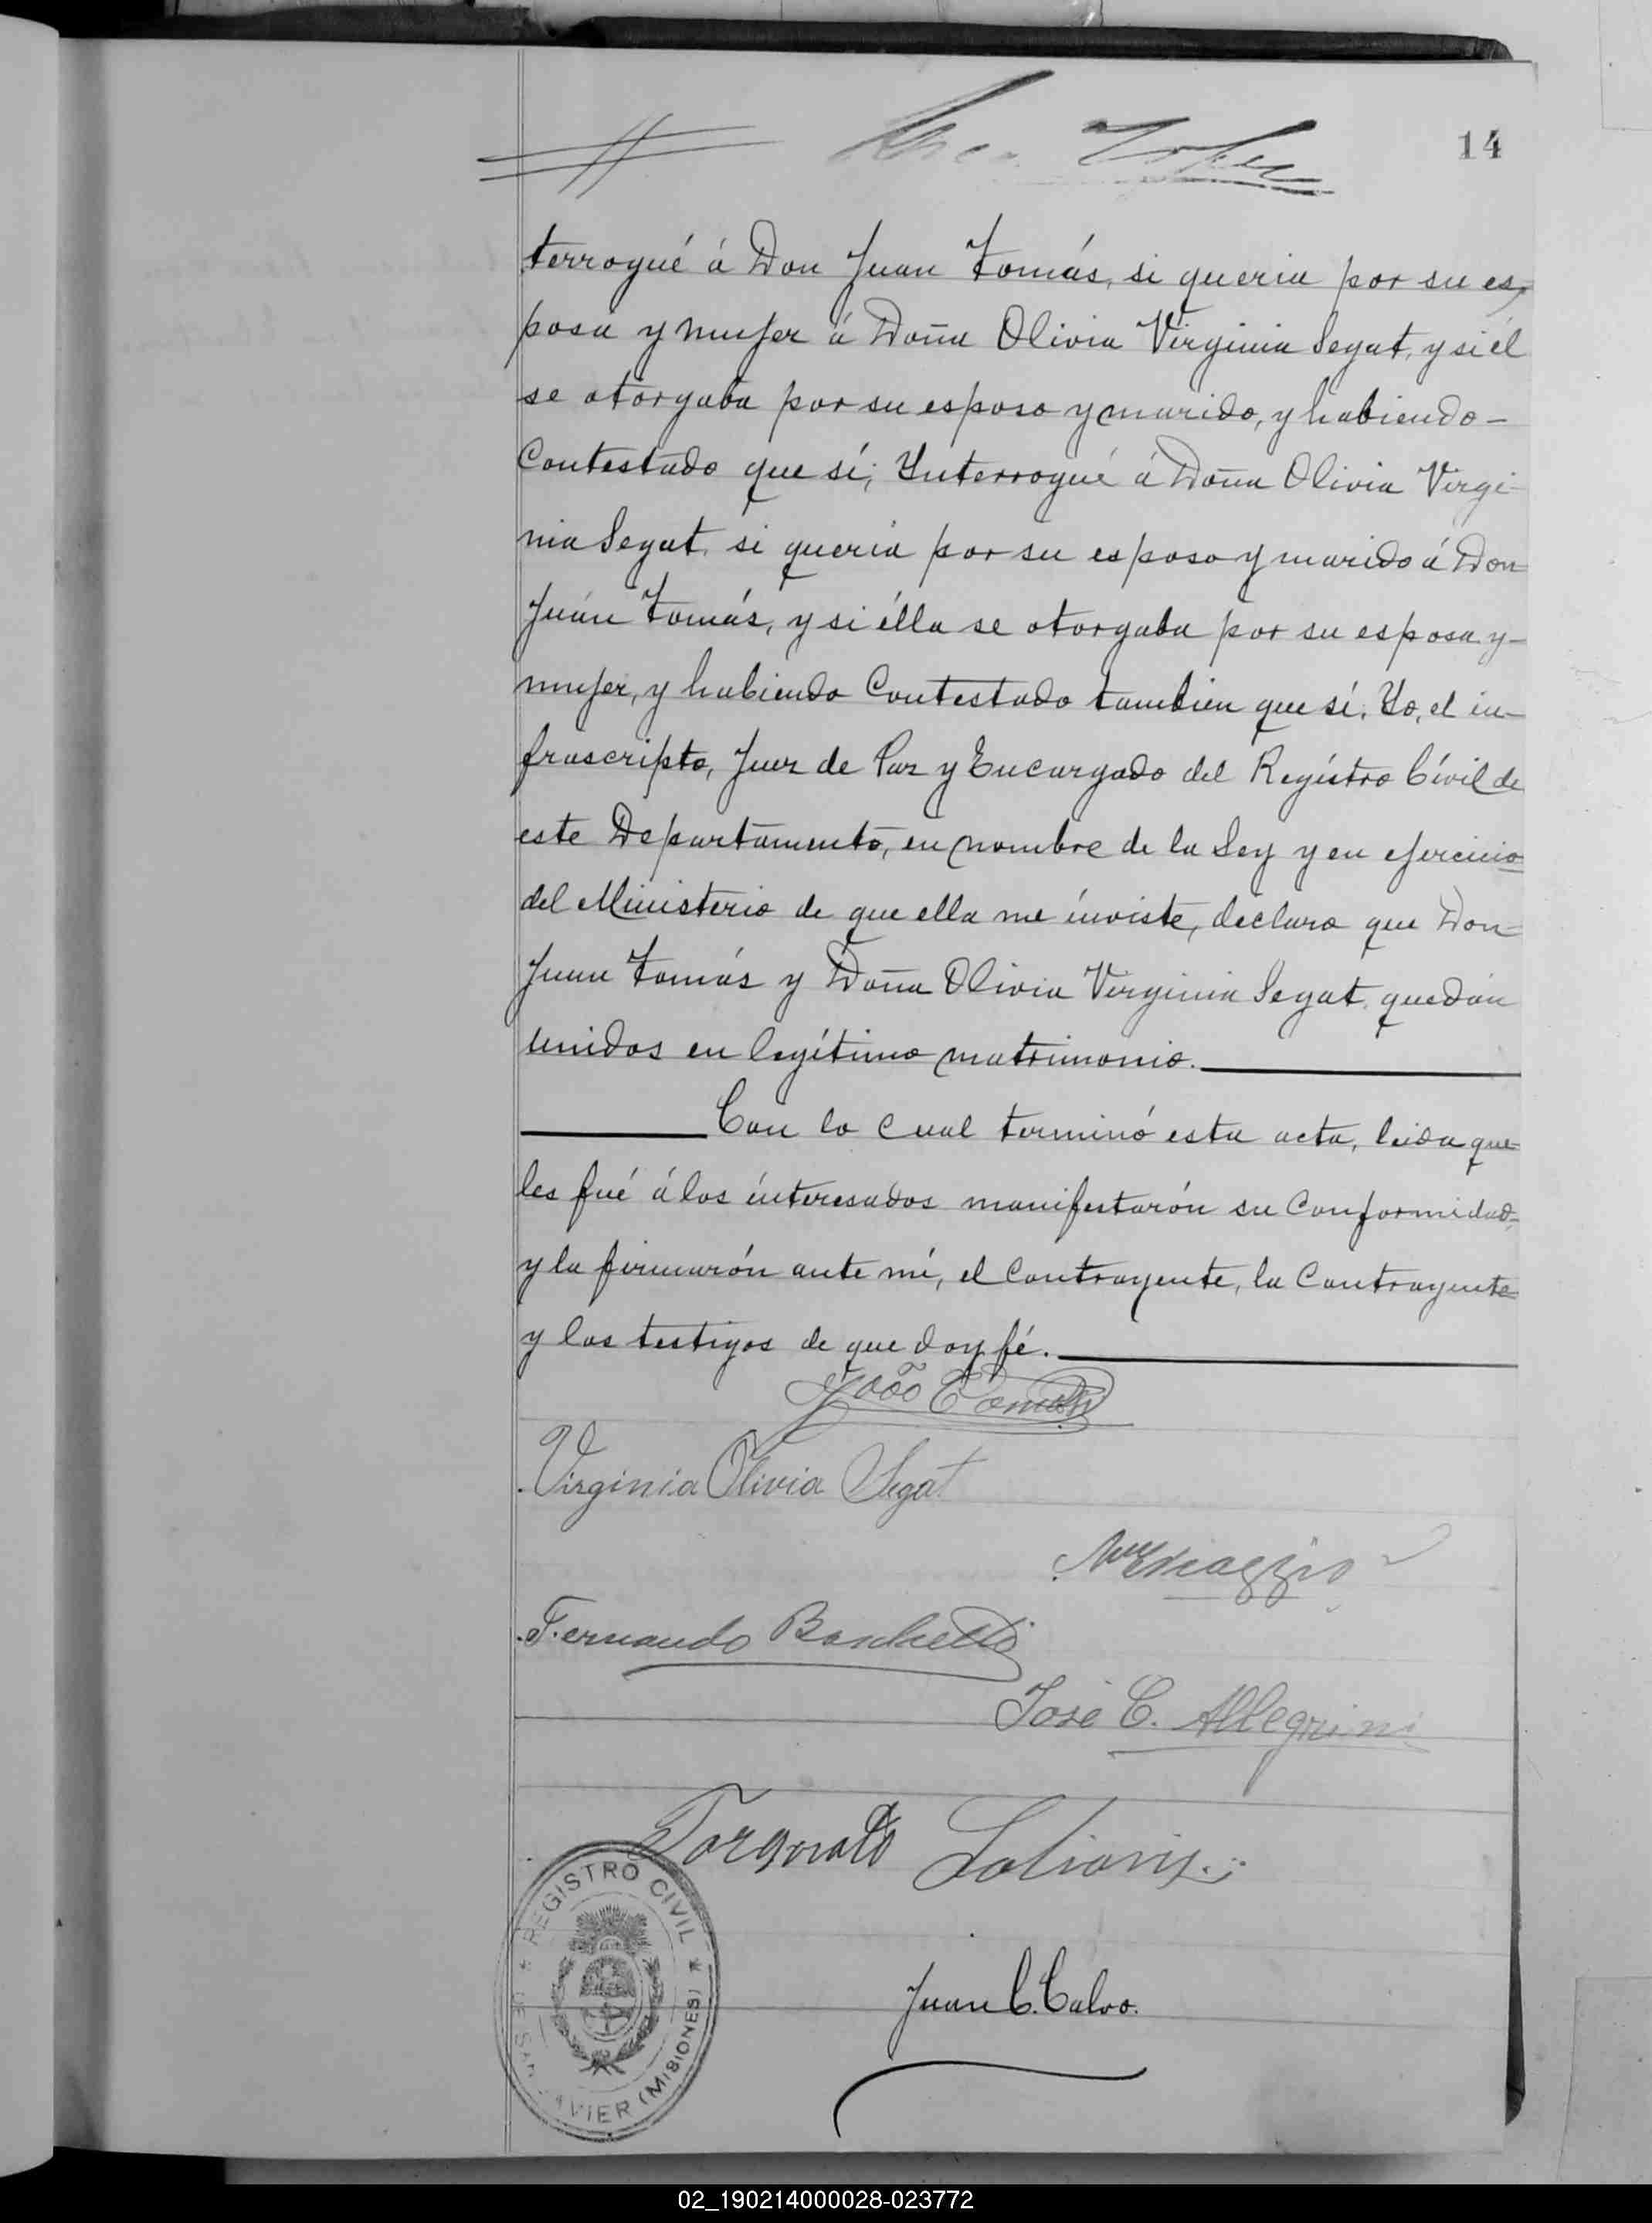 14
terrogué á Don Juan Tomás, si queria por su es-
posa y mujer á Doña Olivia Virginia Segat, y si él
se otorgaba por su esposo y marido, y habiendo -
Contestado que sí; Ynterrogué á Doña Olivia Virgi-
nia Segat, si queria por su esposo y marido á Don
Juán Tomás, y si élla se otorgaba por su esposa y -
mujer, y habiendo Contestado tambien que sí. Yo, el in-
frascripto, Juez de Paz y Encargado del Regístro Cívil de
este Departamento, en nombre de la Ley y en ejercicio
del Ministerio de que ella me ínviste, declaro que Don
Juan Tomás y Doña Olivia Virginia Segat, quedán
unidos en legítimo matrimonio.
Con lo cual terminó esta acta, leida que
les fué á los ínteresados manifestarón su Conformidad,
y la firmarón ante mí, el Contrayente, la Contrayente
y los testigos de que doy fé.
João Tomás
Virginia Olivia Segat
Fernando
José C. Allegrini
Torquato
REGISTRO CIVIL
DE SAN JAVIER (MISIONES)
Juan C. Calvo.
02_190214000028-023772